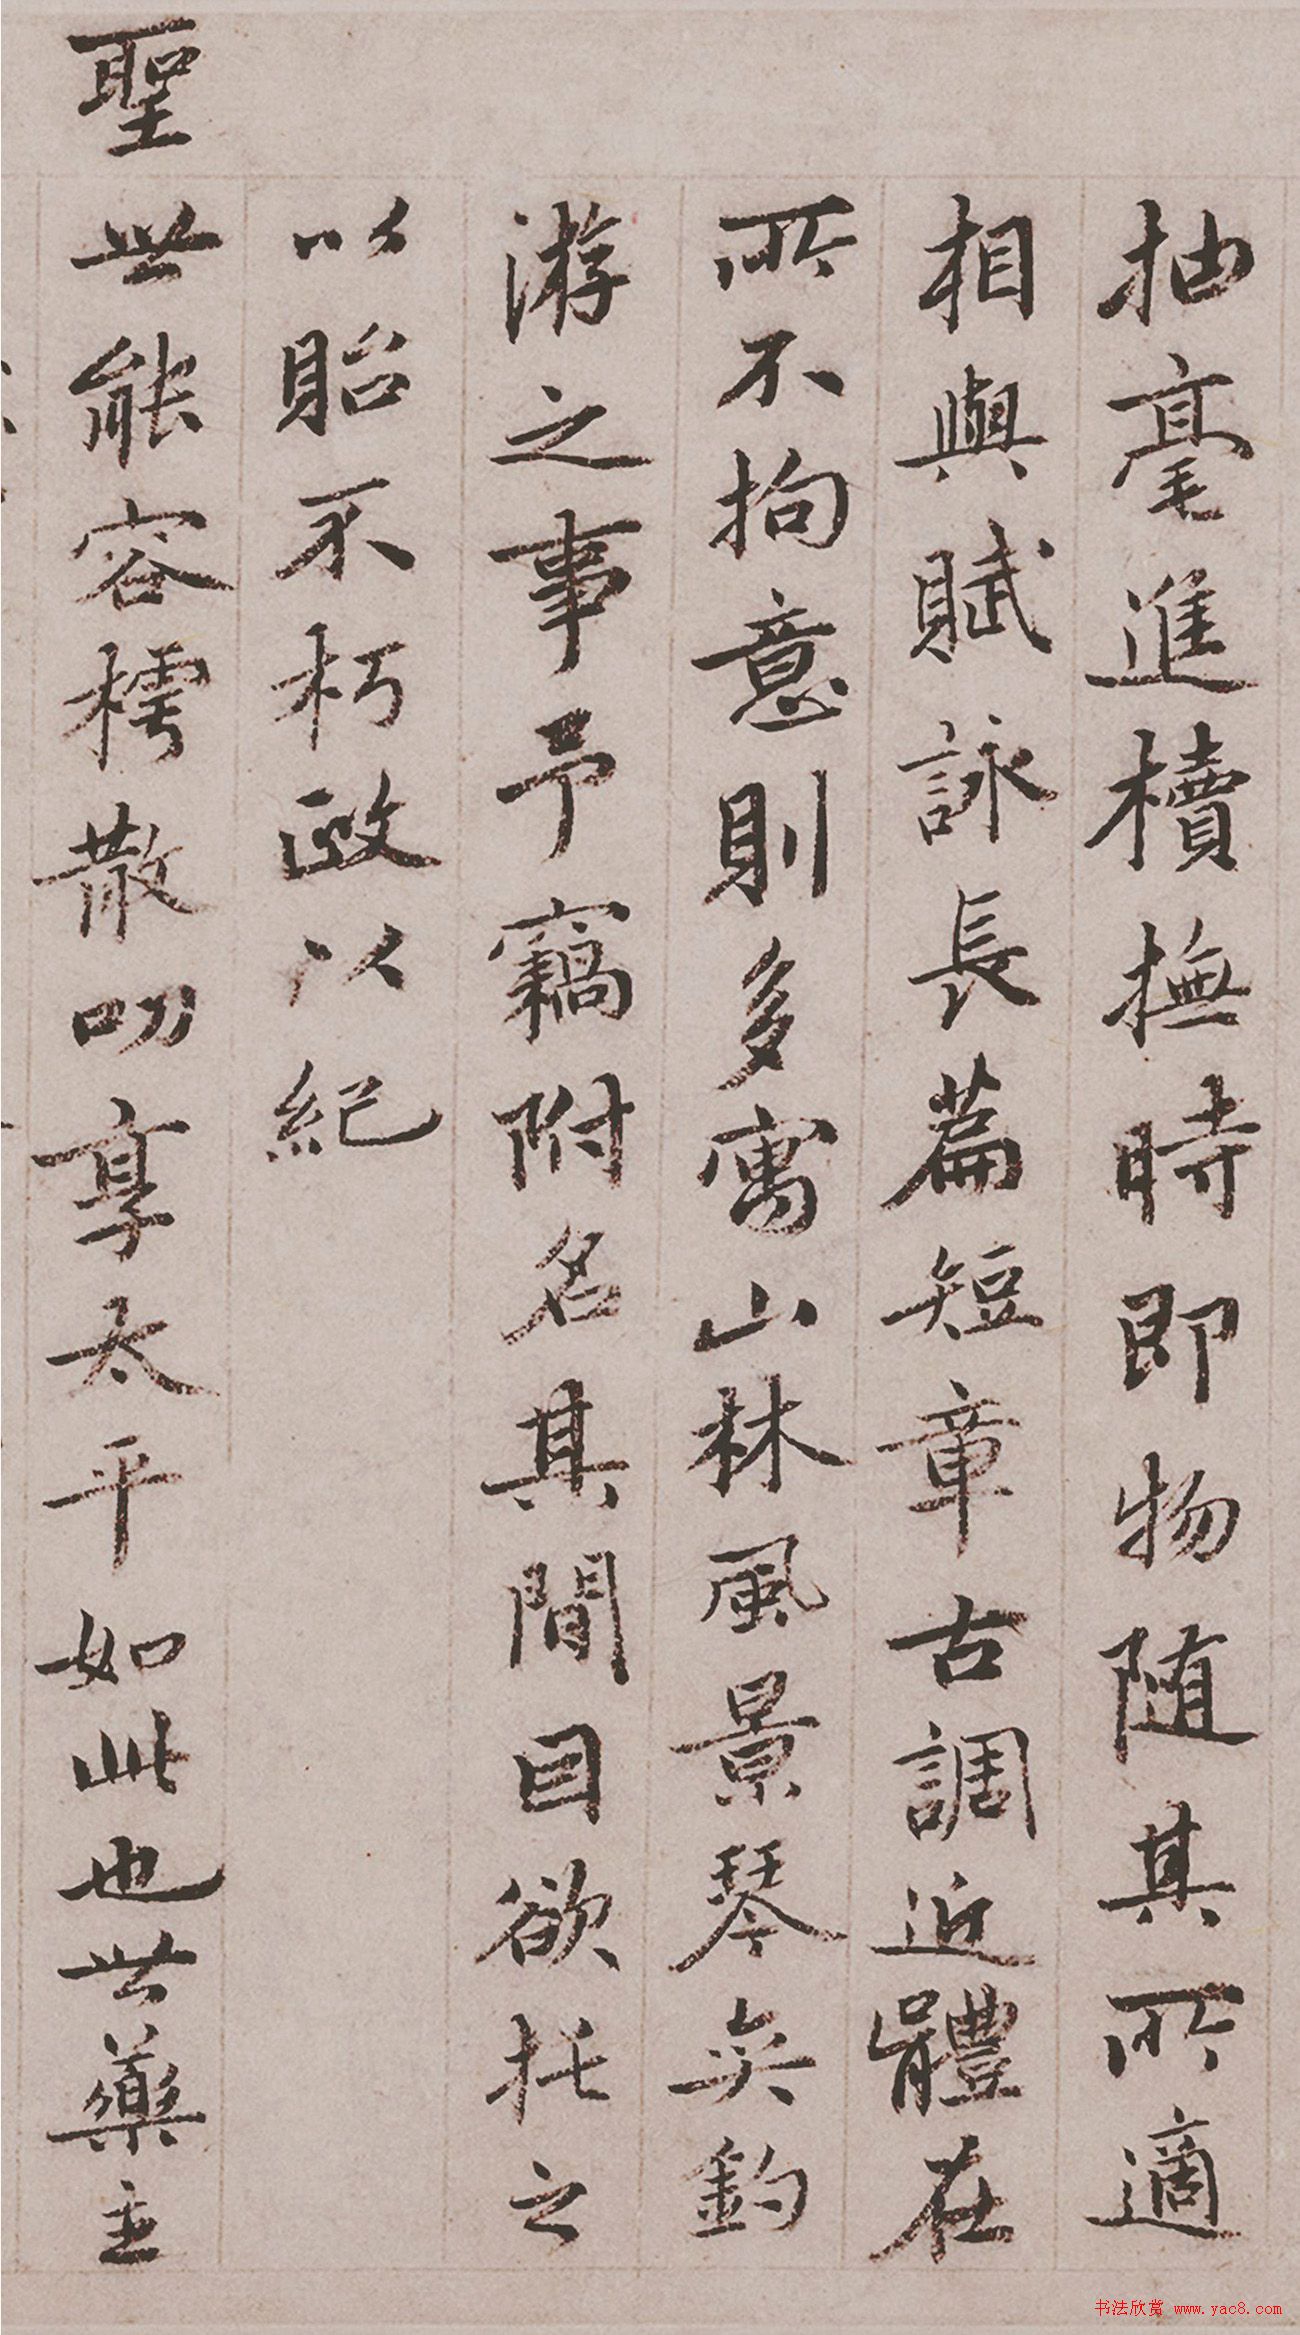 抽毫進櫝撫時即物随其所適
相與賦詠長篇短章古調近體在
所不拘意則多寓山林風景琴奕釣
游之事予竊附名其間因欲托之
以貽不朽政以紀
聖世能容樗散叨享太平如此也世藥主
书法欣赏 www.yac8.com